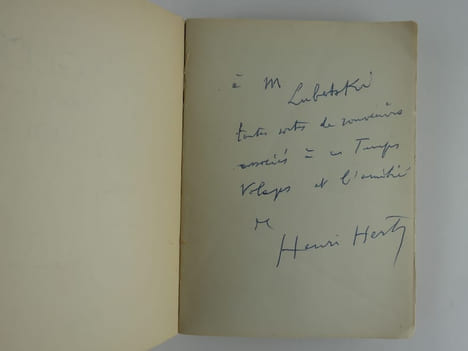 à M
Lubetski
toutes sortes de souvenirs
associés à ces Temps
Volages et l'amitié
de
Henri Hertz